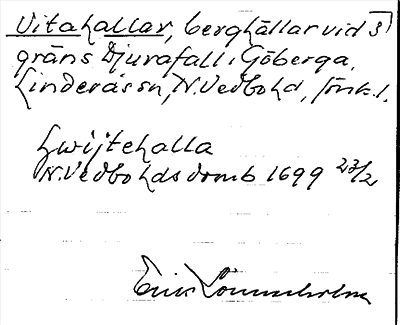 Vitahallar, berghällar vid 3
gräns Djurafall i Göberga,
Linderås sn, N. Vedbo hd, Jönk. l.
Hwijtehalla
N. Vedbo hds domb 1699 23/2
Erik Lönnerholm